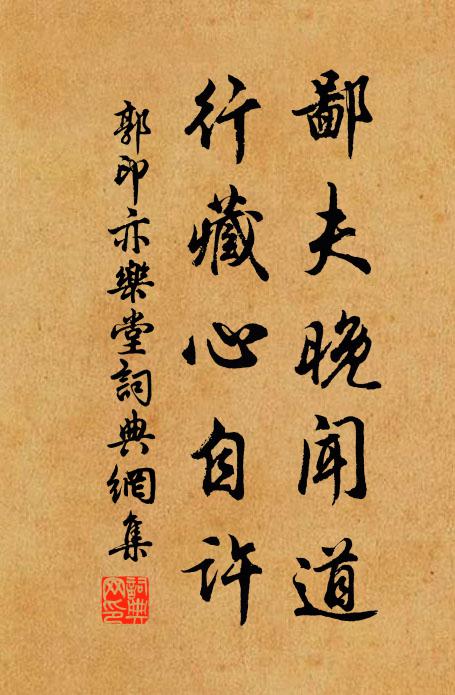 鄙夫晚聞道
行藏心自許
郭印亦樂堂詞典網集
詞典网印